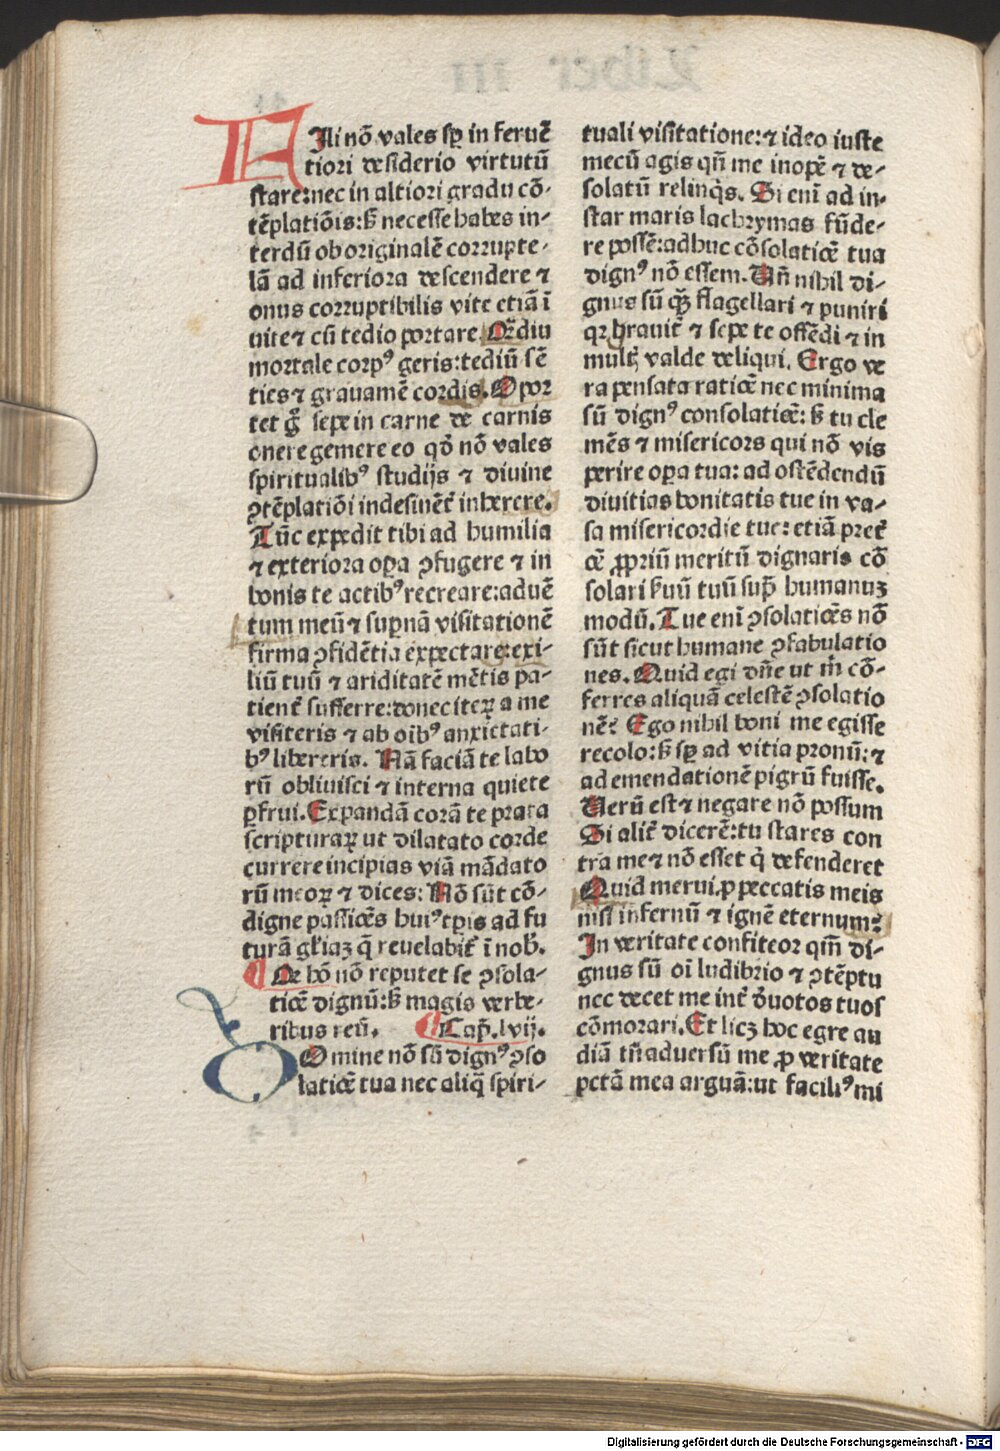 FIli nō vales sꝑ in feruē
tiori desiderio virtutū
stare: nec in altiori gradu cō-
tēplatiōis: sꝫ necesse habes in-
terdū ob originalē corrupte-
lā ad inferiora descendere ⁊
onus corruptibilis vite etiā ī
uite ⁊ cū tedio portare. Qꝫdiu
mortale corpꝰ geris: tediū sē
ties ⁊ grauamē cordis. Opor
tet gͦ sepe in carne de carnis
onere gemere eo qḋ nō vales
spiritualibꝰ studijs ⁊ diuine
ꝯtēplatiōi indesinēt̄ inherere.
Tūc expedit tibi ad humilia
⁊ exteriora oꝑa ꝯfugere ⁊ in
bonis te actibꝰ recreare: aduē
tum meū ⁊ suꝑnā visitationē
firma ꝯfidētia expectare: exi-
liū tuū ⁊ ariditatē mētis pa-
tient̄ sufferre: donec iteꝝ a me
visiteris ⁊ ab oībꝰ anxietati-
bꝰ libereris. Nā faciā te labo
rū obliuisci ⁊ interna quiete
ꝑfrui. Expandā corā te prata
scripturaꝝ ut dilatato corde
currere incipias viā mādato
rū meoꝝ ⁊ dices: Nō sūt cō-
digne passiōes huiꝰ tꝑis ad fu
turā gl'iaꝫ q̄ reuelabit̄ ī nob̄.
¶ Qe hō nō reputet se ꝯsola-
tiōe dignū: sꝫ magis verbe-
ribus reū. ¶ Cap̄. lvij.
DOmine nō sū dignꝰ ꝯso
latiōe tua nec aliq̄ spiri-
tuali visitatione: ⁊ ideo iuste
mecū agis qn̄ me inopē ⁊ de-
solatū relinqͥs. Si enī ad in-
star maris lachrymas fūde-
re possē: adhuc cōsolatiōe tua
dignꝰ nō essem. Un̄ nihil di-
gnus sū qꝫ flagellari ⁊ puniri
qꝛ grauit̄ ⁊ sepe te offēdi ⁊ in
multꝭ valde deliqui. Ergo ve
ra pensata ratiōe nec minima
sū dignꝰ consolatiōe: sꝫ tu cle
mēs ⁊ misericors qui nō vis
perire oꝑa tua: ad ostēdendū
diuitias bonitatis tue in va-
sa misericordie tue: etiā pret̄
oē ꝓpriū meritū dignaris cō
solari ẜuū tuū suꝑ humanuꝫ
modū. Tue enī ꝯsolatiōes nō
sūt sicut humane ꝯfabulatio
nes. Quid egi dn̄e ut m̄ cō-
ferres aliquā celestē ꝯsolatio
nē? Ego nihil boni me egisse
recolo: sꝫ sꝑ ad vitia pronū: ⁊
ad emendationē pigrū fuisse.
Uerū est ⁊ negare nō possum
Si alit̄ dicerē: tu stares con
tra me ⁊ nō esset qͥ defenderet
Quid merui ꝓ peccatis meis
nisi infernū ⁊ ignē eternum?
In veritate confiteor qm̄ di-
gnus sū oī ludibrio ⁊ ꝯtēptu
nec decet me int̄ ðuotos tuos
cōmorari. Et licꝫ hoc egre au
diā tn̄ aduersū me ꝓ veritate
pctā mea arguā: ut faciliꝰ mi
Digitalisierung gefördert durch die Deutsche Forschungsgemeinschaft - DFG